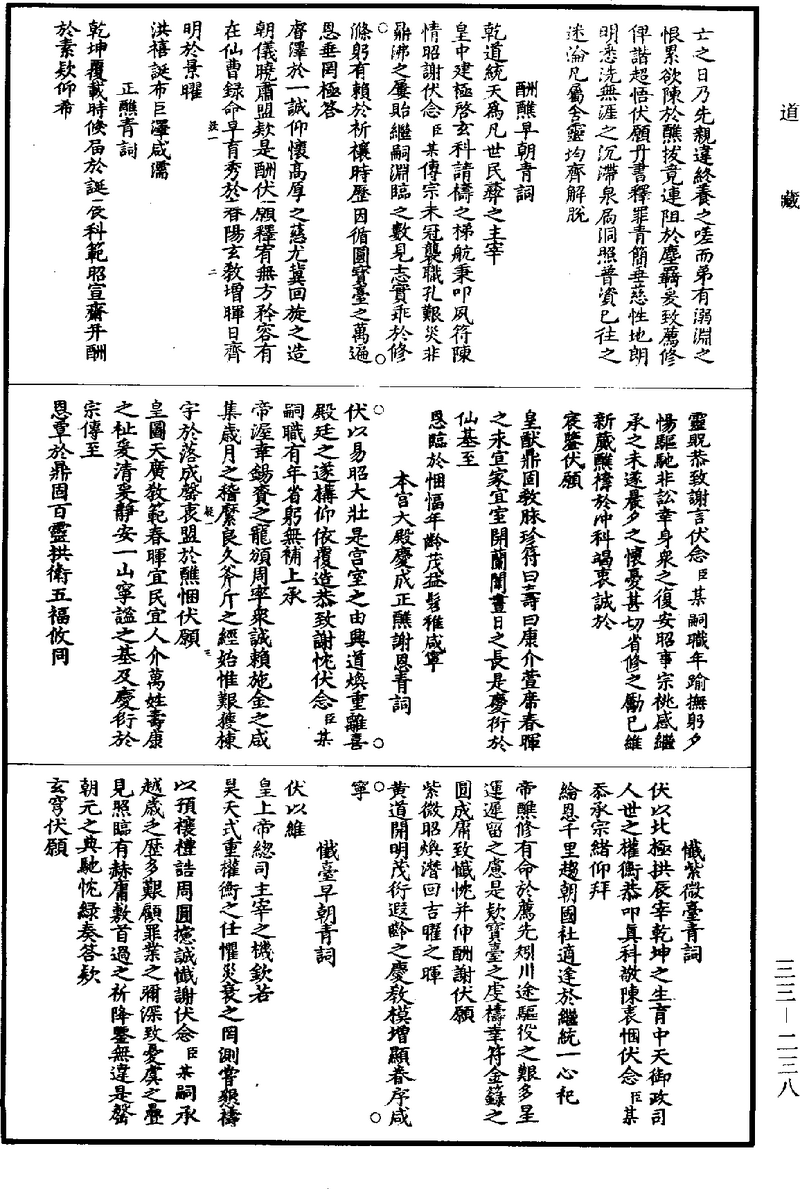 道藏
士之日乃先親違終養之嗟而弟有溺淵之
恨累欲陳於醮拔竟連阻於塵羈爰致薦修
俾諧超悟伏願丹書釋罪青簡垂慈性地朗
明悉洗無涯之沉滯泉扃洞照普資已往之
迷淪凡屬含靈均齊解脫
酬醮早朝青詞
乾道統天為凡世民彝之主宰
皇中建極啓玄科請禱之梯航秉叩夙符陳
情昭謝伏念臣某傳宗未冠襲職孔艱災非
鼎沸之屢貽繼嗣淵臨之數見志實乖於修
滌躬有賴於祈禳時歷因循圓寶臺之萬遍
恩垂罔極答
睿澤於一誠仰懷高厚之慈尤冀回旋之造
朝儀曉肅盟款是酬伏願釋宥無方矜容有
在仙曹錄命早育秀於春陽玄教增暉日齊
明於景曜
洪禧誕布巨澤咸濡
正醮青詞
乾坤覆載時候屆於誕辰科範昭宣齋并酬
於素欵仰希
靈貺恭致謝言伏念臣某嗣職年踰撫躬夕
惕驅馳非訟幸身衆之復安昭事宗祧感繼
承之未遂晨夕之懷憂甚切省修之勵已維
新蕆醮禱於沖科竭衷誠於
宸鑒伏願
皇猷鼎固教脉珍符曰壽曰康介萱席春暉
之未宣家宜室開蘭闈晝日之長是慶衍於
仙基至
恩臨於悃愊年齡茂益髫稚咸寧
本宮大殿慶成正醮謝恩青詞
伏以易昭大壯是宮室之由興道煥重離喜
殿廷之遂構仰依覆造恭致謝忱伏念臣某
嗣職有年省躬無補上承
帝渥幸錫賚之寵頒周率衆誠賴施金之咸
集歲月之稽縻良久斧斤之經始惟艱獲棟
宇於落成罄衷盟於醮悃伏願
皇圖天廣教範春暉宜民宜人介萬姓壽康
之祉爰清爰靜安一山寧謐之基及慶衍於
宗傳至
恩覃於鼎固百靈拱衛五福攸同
懺紫微臺青詞
伏以北極拱辰宰乾坤之生育中天御政司
人世之權衡恭叩真科敬陳衷悃伏念臣某
忝承宗緒仰拜
綸恩千里趨朝國社適逢於繼統一心祀
帝醮修有命於薦先矧川途驅役之艱多星
運遲留之慮是欵寶臺之虔禱幸符金籙之
圓成庸致懺忱并伸酬謝伏願
紫微昭煥潛回吉曜之暉
黄道開明茂衍遐齡之慶教模增顯春序咸
寧
懺臺早朝青詞
伏以維
皇上帝總司主宰之機欽若
昊天式重權衡之仕懼災衰之罔測嘗願禱
以預禳禮誥周圓摅誠懺謝伏念臣某嗣承
越歲之歷多艱顧罪業之彌深致憂虞之疊
見照臨有赫庸敷首過之祈降鑒無違是罄
朝元之典馳忱綠奏荅欵
玄穹伏願
三三—二三八